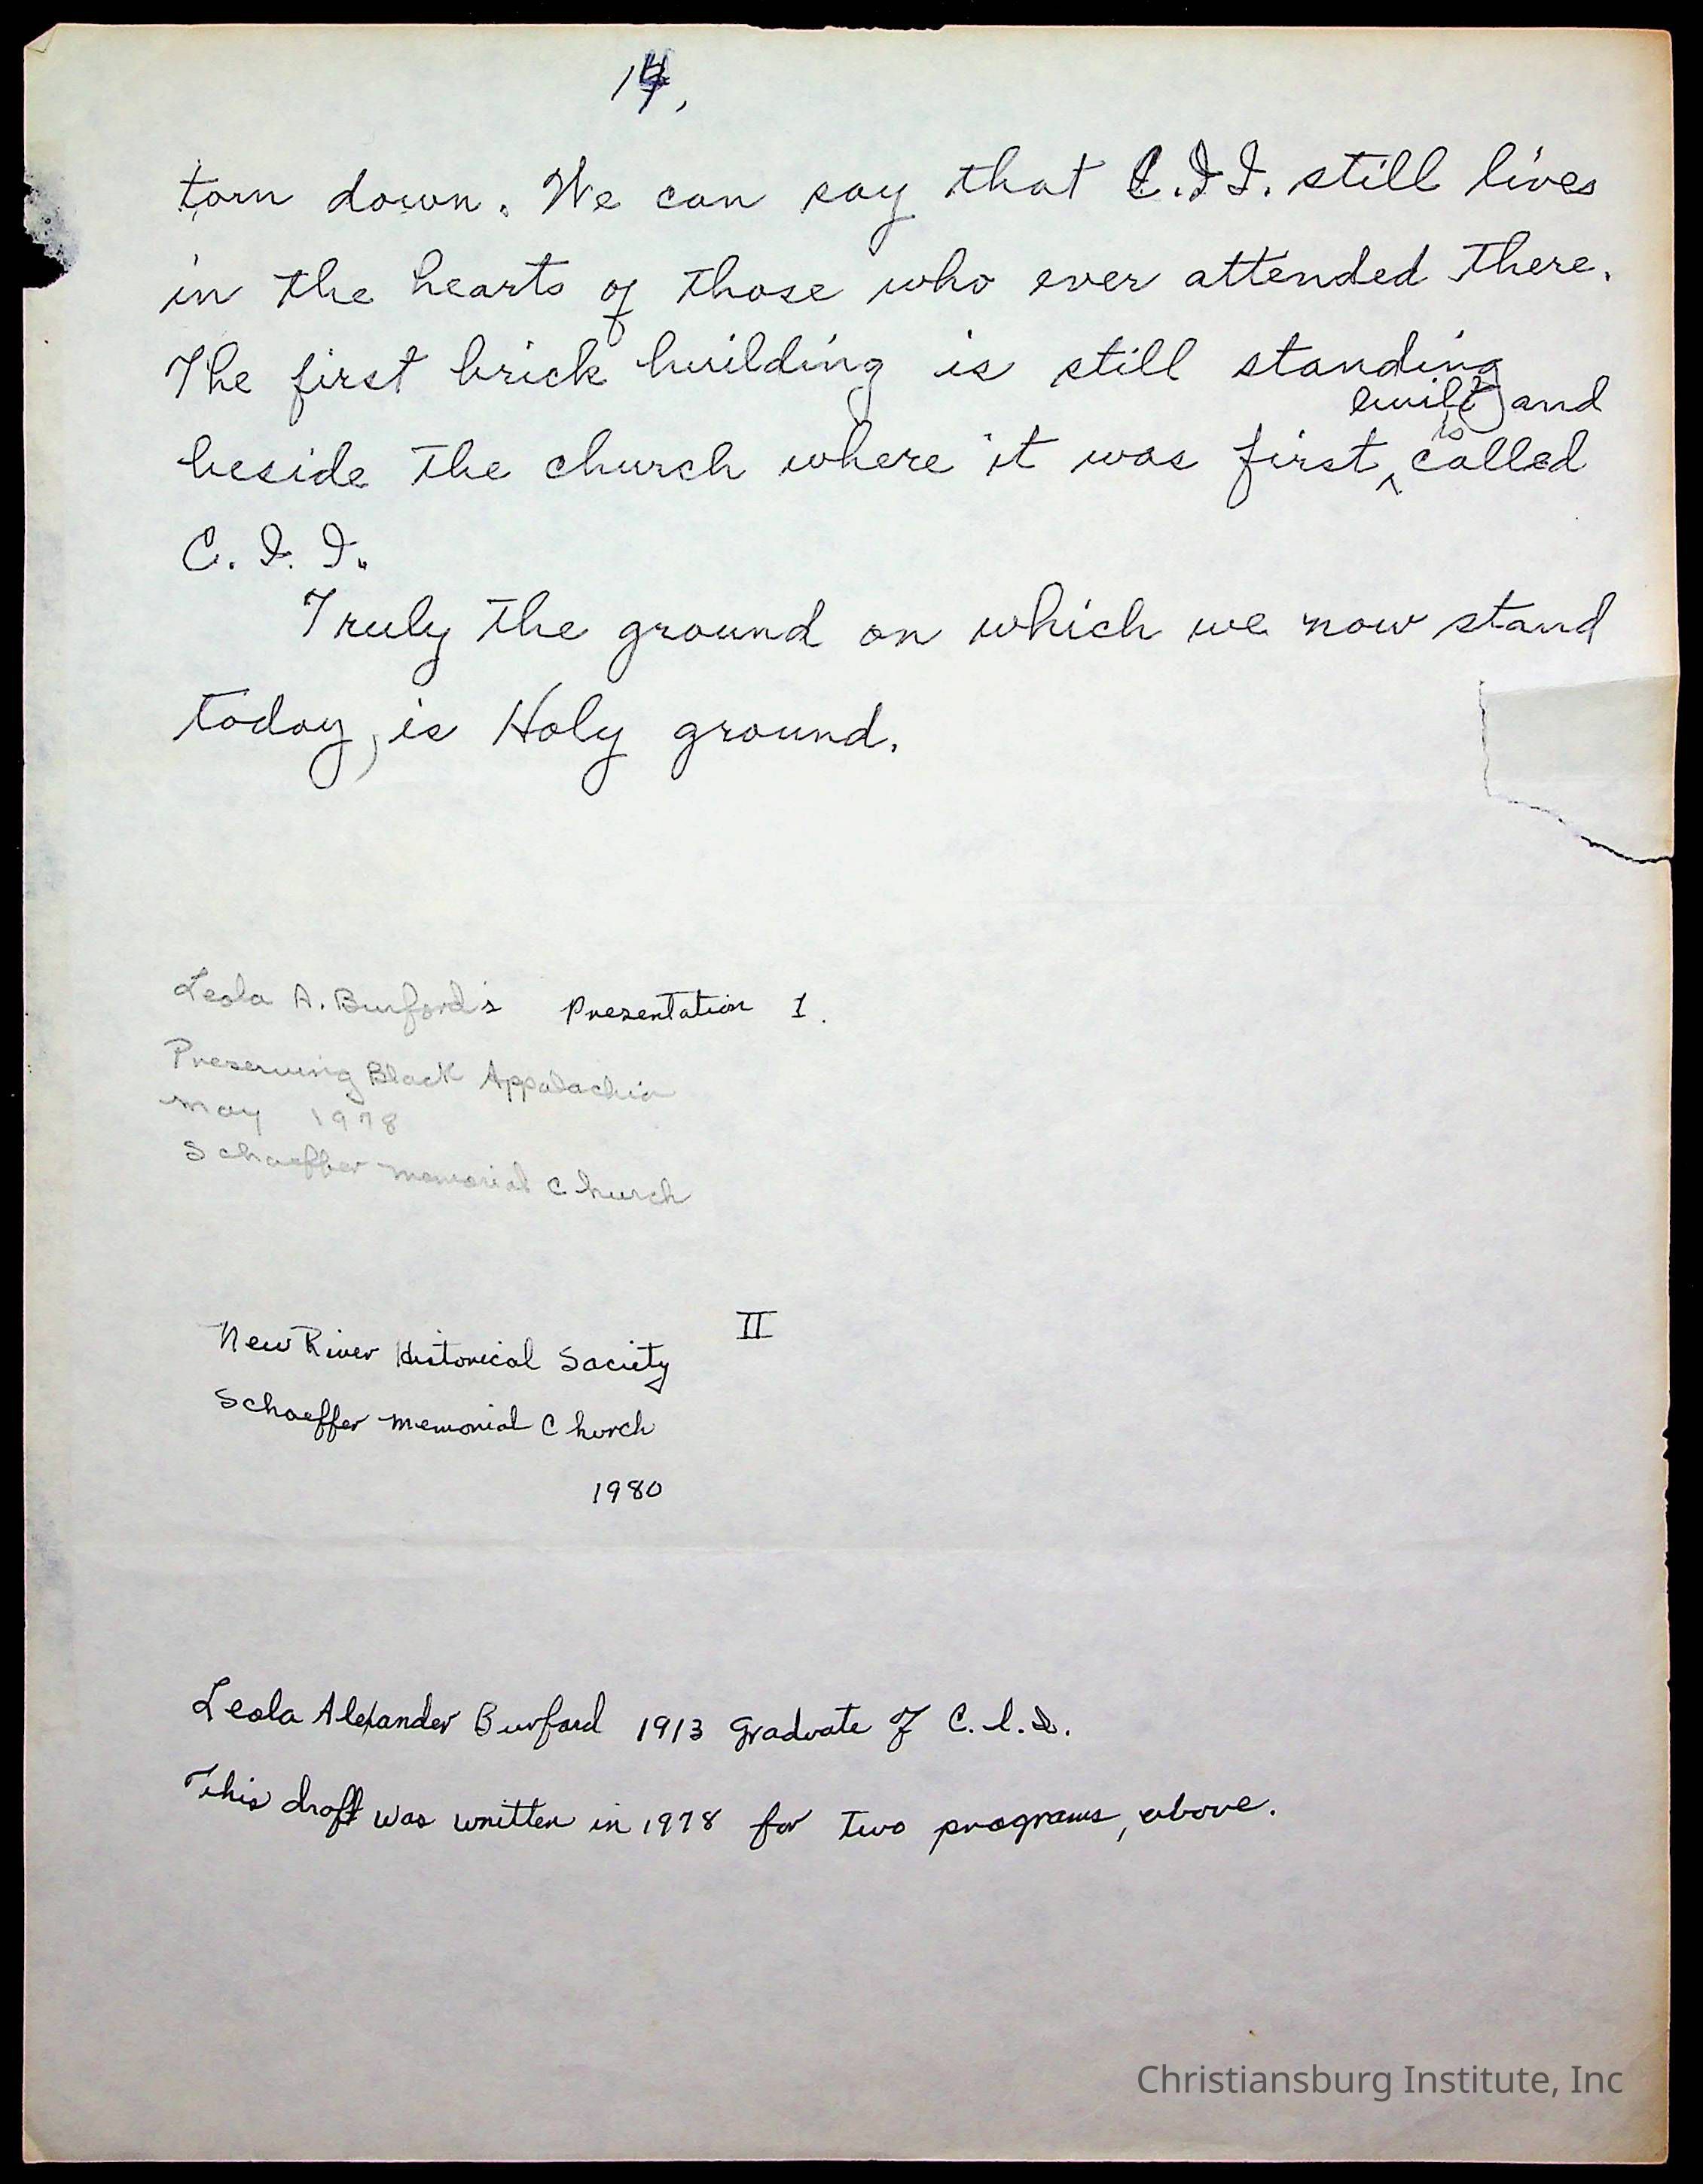 14,
torn down. We can say that C.I.I. still lives
in the hearts of those who ever attended there.
The first brick building is still standing
built and
is
beside the church where it was first, called
C. I. I.
Truly the ground on which we now stand
today, is Holy ground.
Leola A. Burford's Presentation I.
Preserving Black Appalachia
May 1978
Schaeffer Memorial Church
II
New River Historical Society
Schaeffer Memorial Church
1980
Leola Alexander Burford 1913 graduate of C. I. I.
This draft was written in 1978 for two programs, above.
Christiansburg Institute, Inc